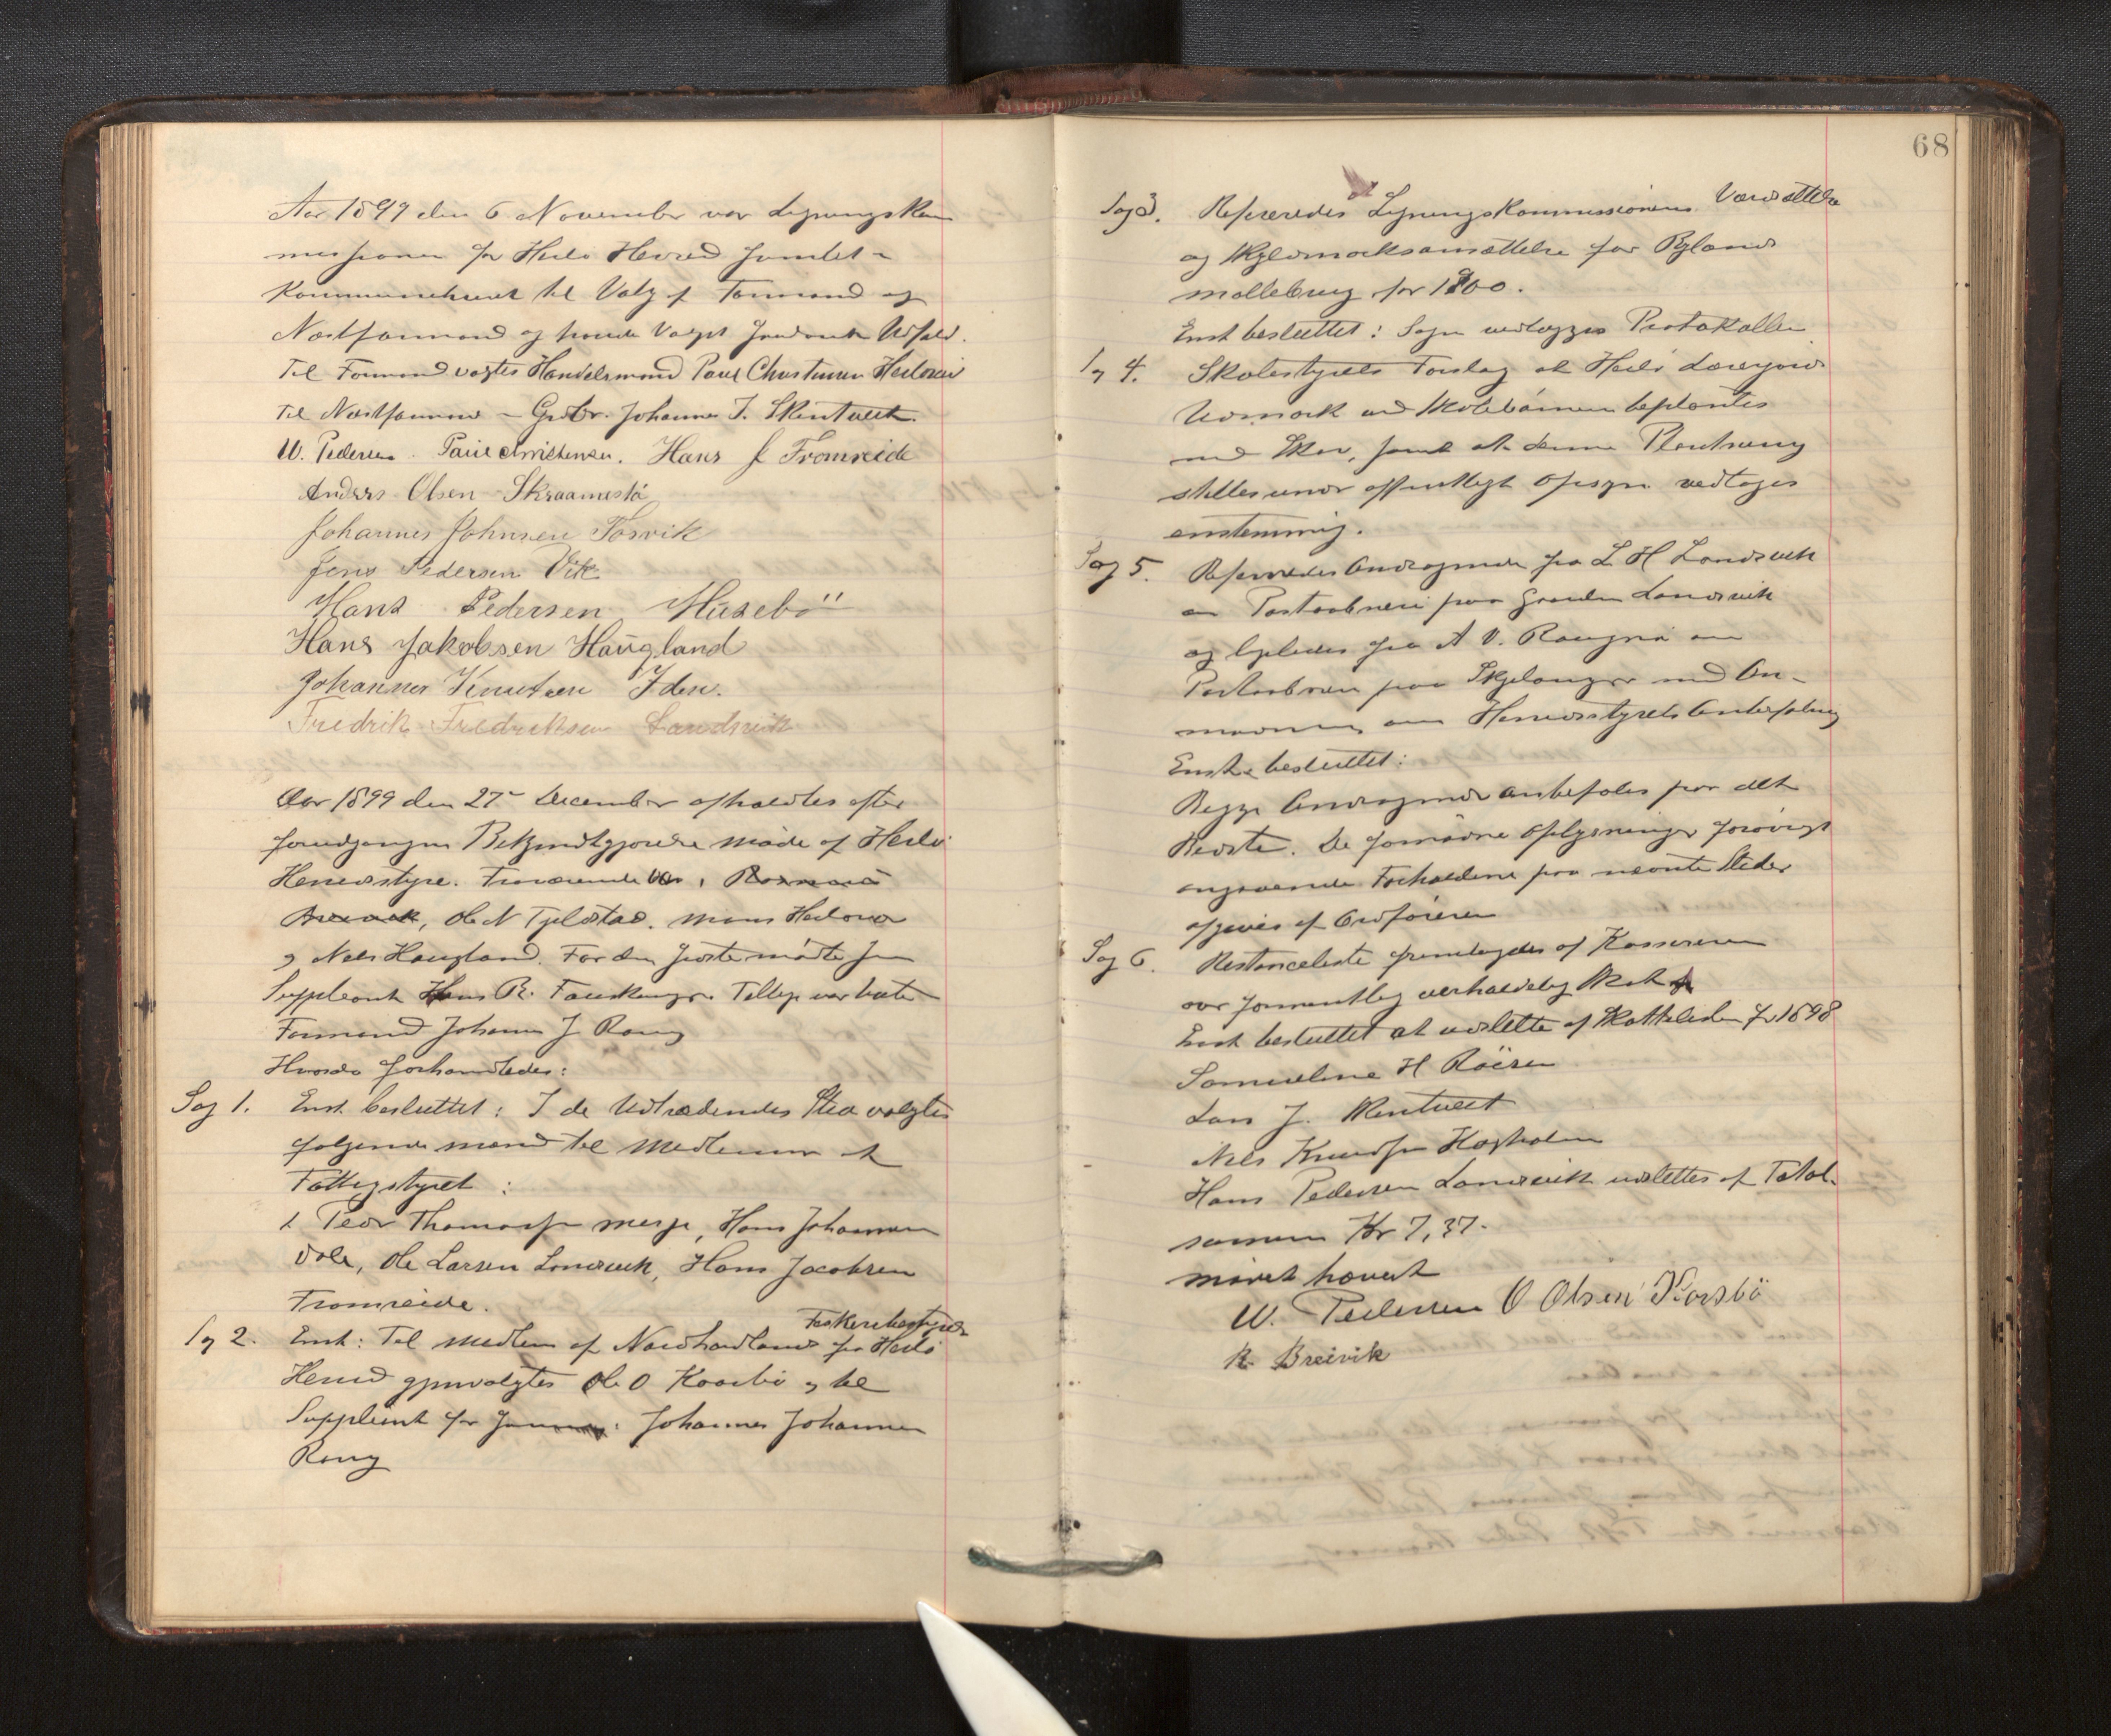 Aar 1899 den 6 November var Ligningskom
missionen for Herlø Herred samlet
Kommunehuset til Valg af Formand og
Næstformand og havde Valget saadant Udfald.
Til Formand valgtes Handelsmand Paul Christensen Herløvær
Til Næstformand Grdbr. Johannes J. Skintveit
W. Pedersen. Paul Christensen. Hans J Fromreide
Anders Olsen Skraamestø
Johannes Johnsen Tosvik
Jens Pedersen Vik
Hans Pedersen Husebö
Hans Jakobsen Haugland
Johannes Knutsen Iden.
Fredrik Fredriksen Landsvik
Aar 1899 den 27 December afholdtes efter
foregangen Bekjendtgjørelse møde af Herlø
Herredsstyre. Fraværende var,
Breivik, Ole N Tjeldstad. Mons Herløvær
og Nels Haugland. For den første mødte som
Suppleant Hans R. Fauskanger. Tillige var Vice
Formand Johannes J Rong
Hvorda forhandledes:
Sag 1. Enst besluttet: I de Udtrædendes Sted valgtes
følgende mænd til Medlemmer af
Fattigstyret:
Peder Thomassen Mesje, Hans Johannesen
Dale, Ole Larsen Landsvik, Hans Jacobsen
Fromreide.
Fiskeribestyrer
Sag 2. Enst: Til Medlem af Nordhordlands for Herlø
Herred gjenvalgtes Ole O Kaarbø og til
Suppleant for samme: Johannes Johannesen
Rong
68
Sag 3. Refereredes Ligningskommissionens Værdsættelse
og Skyldmarksansættelse for Bylands
møllebrug for 1900.
Enst besluttet: Sagen vedlægges Protokollen
Sag 4. Skolestyrets Forslag at Herlø Lærergaards
Udmark ved Skolebørnene beplantes
med Skov, samt at denne Plantning
stilles under offentligt Opsyn vedtages
enstemmig.
Sag 5. Refereredes Andragende fra L H Landsvik
om Postaabneri paa Gaarden Landsvik
og ligeledes fra A V. om
Postaabneri paa Skjelanger med An-
modning om Herredsstyrets Anbefaling
Enst. besluttet:
Begge Andragender anbefales paa det
Bedste. De fornødne Oplysninger forøvrigt
angaaende Forholdene paa nævnte Steder
afgives af Ordføreren
Sag 6. Restanceliste fremlagdes af Kassereren
over formentlig uerholdelig Skat
Enst besluttet at udslette af Skattelisten for 1898
Samueline H Røisen
Lars J. Skintveit
Nils Knudsen
Hans Pedersen Landsvik udslettes af Total-
summen Kr 7,37.
Mødet hævet
W. Pedersen O Olsen Korsbö
R. Breivik